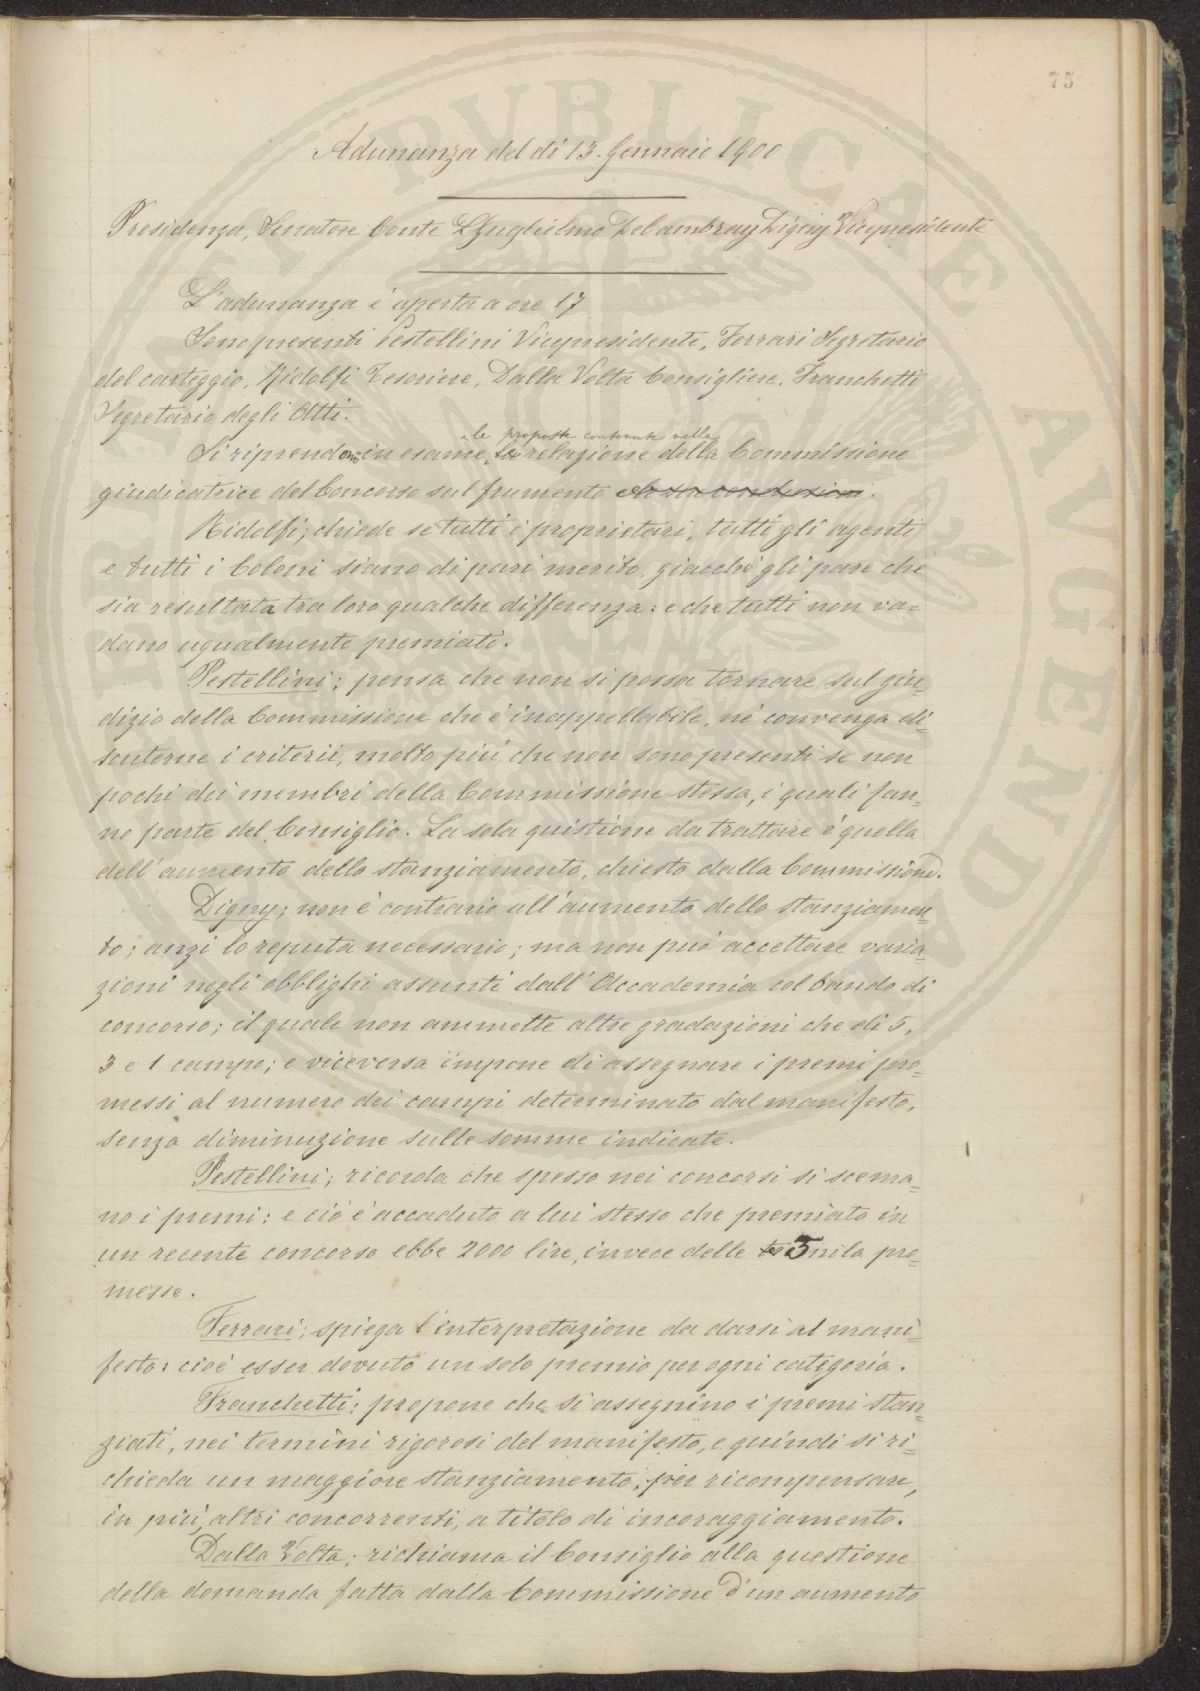 75
Adunanza del dì 13. Gennaio 1900
Presidenza, Senatore Conte L Guglielmo De Cambray Digny Vicepresidente
L'adunanza è aperta a ore 17
Sono presenti Pestellini Vicepresidente, Ferrari Segretario
del carteggio, Ridolfi Tesoriere, Dalla Volta Consigliere, Franchetti
Segretario degli Atti.
le proposte contenute nella
Si riprendono in esame, la relazione della Commissione
giudicatrice del Concorso sul frumento
Ridolfi; chiede se tutti i proprietari, tutti gli agenti
e tutti i Coloni siano di pari merito, giacchè gli pare che
sia resultata tra loro qualche differenza: e che tutti non va=
dano ugualmente premiati.
Pestellini; pensa che non si possa tornare sul giu=
dizio della Commissione che è inappellabile, nè convenga di=
scuterne i criterii, molto più che non sono presenti se non
pochi dei membri della Commissione stessa, i quali fan=
no parte del Consiglio. La sola quistione da trattare è quella
dell'aumento dello stanziamento, chiesto dalla Commissione.
Digny; non è contrario all'aumento dello stanziamen=
to; anzi lo reputa necessario; ma non può accettare varia=
zioni negli obblighi assunti dall'Accademia col bando di
concorso; il quale non ammette altre gradazioni che di 5,
3 e 1 campo; e viceversa impone di assegnare i premi pro=
messi al numero dei campi determinato dal manifesto,
senza diminuzione sulle somme indicate.
Pestellini; ricorda che spesso nei concorsi si scema=
no i premi: e ciò è accaduto a lui stesso che premiato in
un recente concorso ebbe 2000 lire, invece delle 5 mila pro=
messe.
Ferrari; spiega l'interpretazione da darsi al mani=
festo: cioè esser dovuto un solo premio per ogni categoria.
Franchetti; propone che si assegnino i premi stan=
ziati, nei termini rigorosi del manifesto, e quindi si ri=
chieda un maggiore stanziamento, per ricompensare,
in più, altri concorrenti, a titolo di incoraggiamento.
Dalla Volta; richiama il Consiglio alla questione
della domanda fatta dalla Commissione d'un aumento
PVBLICAE
AVGENDAE